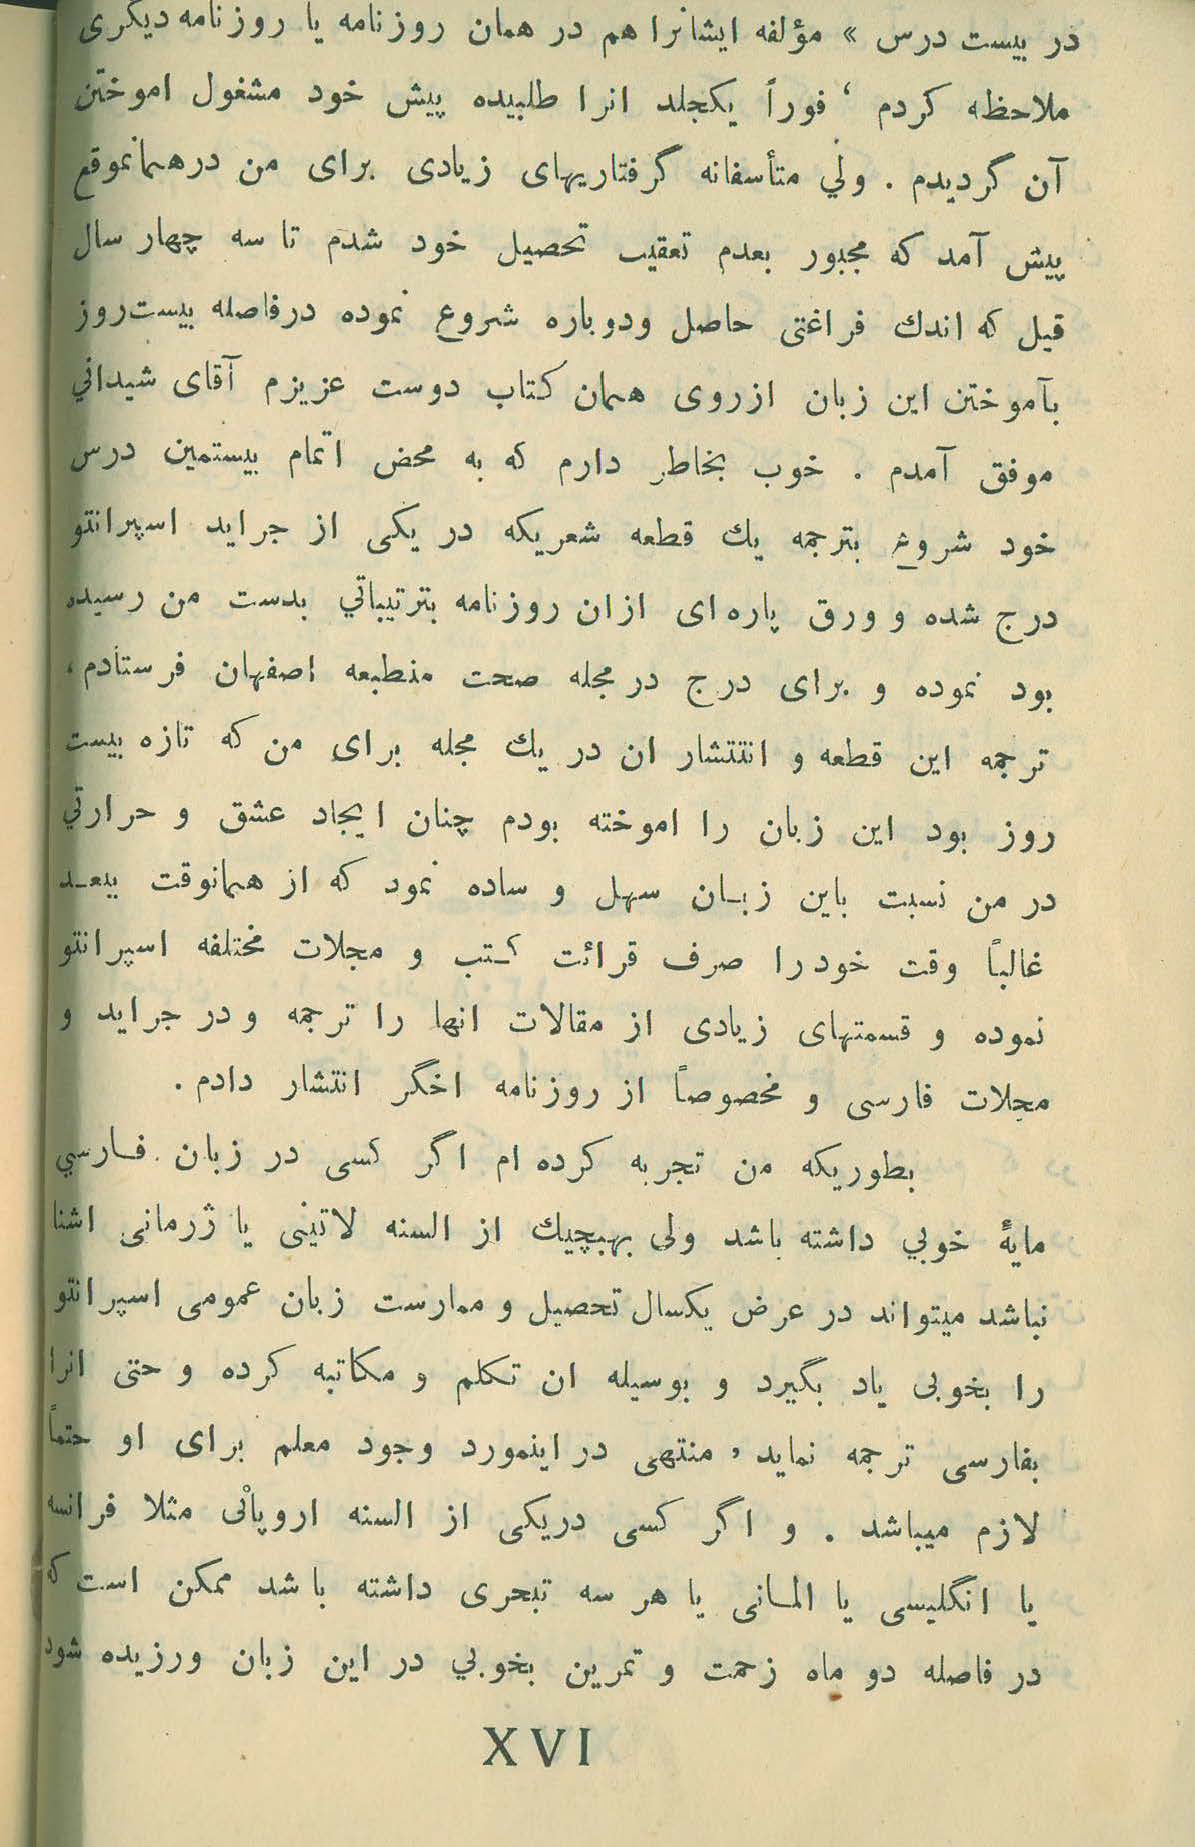 در بیست درس » مؤلفه ایشانرا هم در همان روزنامه یا روزنامه دیگری
ملاحظه کردم ، فوراً یکجلد انرا طلبیده پیش خود مشغول اموختن
آن گردیدم . ولي متأسفانه گرفتاریهای زیادی برای من درهمانموقع
پیش آمد که مجبور بعدم تعقیب تحصیل خود شدم تا سه چهار سال
قبل که اندك فراغتی حاصل ودوباره شروع نموده درفاصله بیست‌روز
بآموختن این زبان ازروی همان کتاب دوست عزیزم آقای شیداني
موفق آمدم . خوب بخاطر دارم که به محض اتمام بیستمین درس
خود شروع بترجمه یك قطعه شعریکه در یکی از جراید اسپرانتو
درج شده و ورق پاره‌ای ازان روزنامه بترتیباتي بدست من رسیده
بود نموده و برای درج در مجله صحت منطبعه اصفهان فرستادم ،
ترجمه این قطعه و انتتشار ان در یك مجله برای من که تازه بیست
روز بود این زبان را اموخته بودم چنان ایجاد عشق و حرارتي
در من نسبت باین زبـان سهل و ساده نمود که از همانوقت ببعـد
غالباً وقت خودرا صرف قرائت کـتب و مجلات مختلفه اسپرانتو
نموده و قسمتهای زیادی از مقالات انها را ترجمه و در جراید و
مجلات فارسی و مخصوصاً از روزنامه اخگر انتشار دادم .
بطوریکه من تجربه کرده ام اگر کسی در زبان فـارسي
مایهٔ خوبي داشته باشد ولی بهیچیك از السنه لاتینی یا ژرمانی اشنا
نباشد میتواند در عرض یکسال تحصیل و ممارست زبان عمومی اسپرانتو
را بخوبی یاد بگیرد و بوسیله ان تکلم و مکاتبه کرده و حتی انرا
بفارسی ترجمه نماید ، منتهی در اینمورد وجود معلم برای او حتماً
لازم میباشد . و اگر کسی دریکی از السنه اروپائی مثلا فرانسه
یا انگلیسی یا المـانی یا هر سه تبحری داشته باشد ممکن است که
در فاصله دو ماه زحمت و تمرین بخوبي در این زبان ورزیده شود
XVI